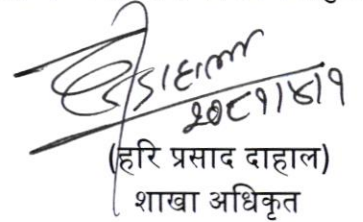 २०८१।४।१
(हरि प्रसाद दाहाल)
शाखा अधिकृत